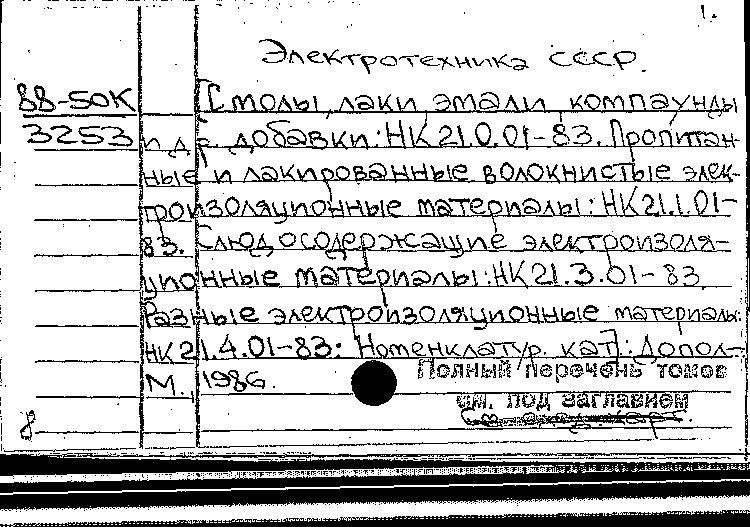 1.
Электротехника СССР.
88-50К [Смолы, лаки, эмали, компаунды
3253 и др. добавки: НК 21.0.01-83. Пропитан-
ные и лакированные волокнистые элек-
троизоляционные материалы: НК 21.1.01-
83. Слюдосодержащие электроизоля-
ционные материалы: НК 21.3.01-83.
Разные электроизоляционные материалы:
НК 21.4.01-83: Номенклатур. кат]: Допол-
М., 1986. Полный перечень томов
см. под заглавием
8